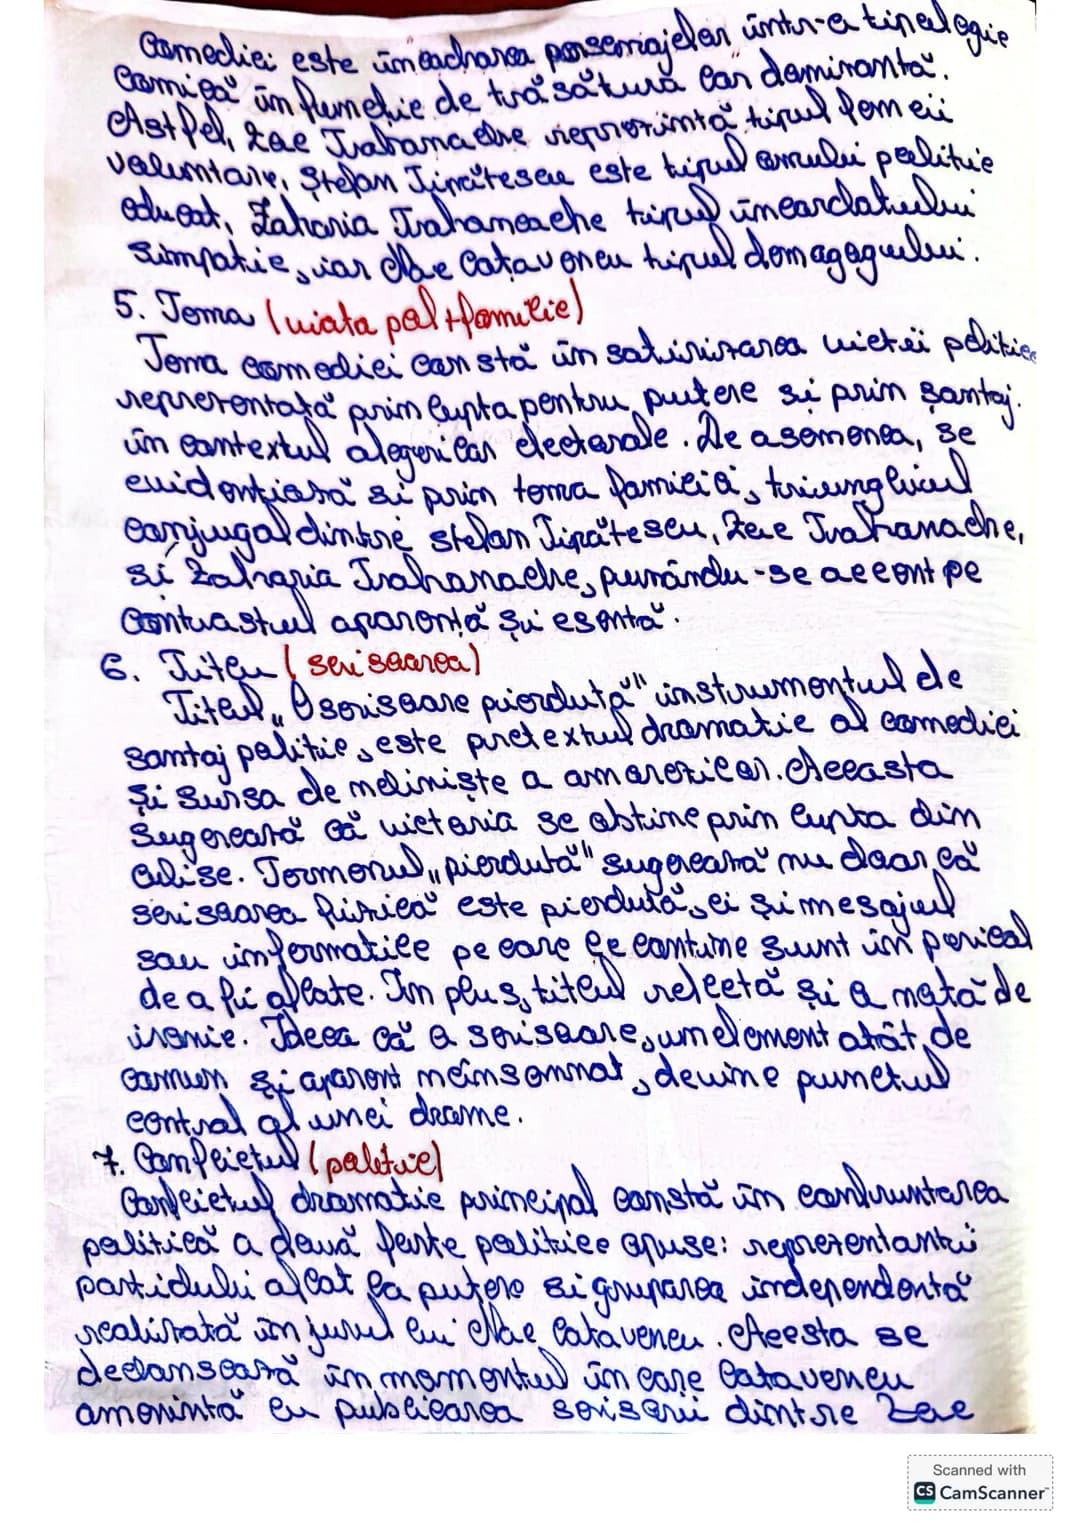 Comediei este încadrarea personajelor într-o tipologie
comică în funcție de trăsătura lor dominantă.
Astfel, Zoe Trahanache reprezintă tipul femeii
voluntare, Ștefan Tipătescu este tipul omului politic
educat, Zaharia Trahaneache tipul încornoratului
simpatic, iar Nae Cațavencu tipul demagogului.
5. Tema (viata pol + familie)
Tema comediei constă în satirizarea vieții politice
reprezentată prin lupta pentru putere si prin șantaj.
în contextul alegerilor electorale. De asemenea, se
evidentiază si prin tema familiei, triunghiul
conjugal dintre stefan Tipătescu, Zoe Trahanache,
si Zaharia Trahanache, punându-se accent pe
contrastul aparență și esență.
6. Titlu (scrisoarea)
Titlul „O scrisoare pierdută" instrumentul de
santaj politic, este pretextul dramatic al comediei
și sursa de neliniște a amorezilor. Aceasta
Sugerează că victoria se obtine prin lupta din
culise. Termenul „pierdută" sugerează nu doar că
scrisoarea fizică este pierdută, ci și mesajul
sau informatiile pe care le contine sunt în pericol
de a fi aflate. În plus, titlul reflectă și o notă de
ironie. Ideea că o scrisoare, un element atât de
comun și aparent neînsemnat, devine punctul
central al unei drame.
7. Conflictul (politic)
Conflictul dramatic principal constă în confruntarea
politică a două forte politice opuse: reprezentantii
partidului aflat la putere si gruparea independentă
realizată în jurul lui Nae Catavencu. Acesta se
declansează în momentul în care Catavencu
amenintă cu publicarea scrisorii dintre Zoe
Scanned with
CS CamScanner